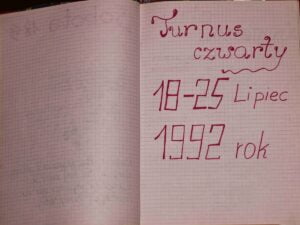 Turnus
czwarty
18-25 Lipiec
1992 rok